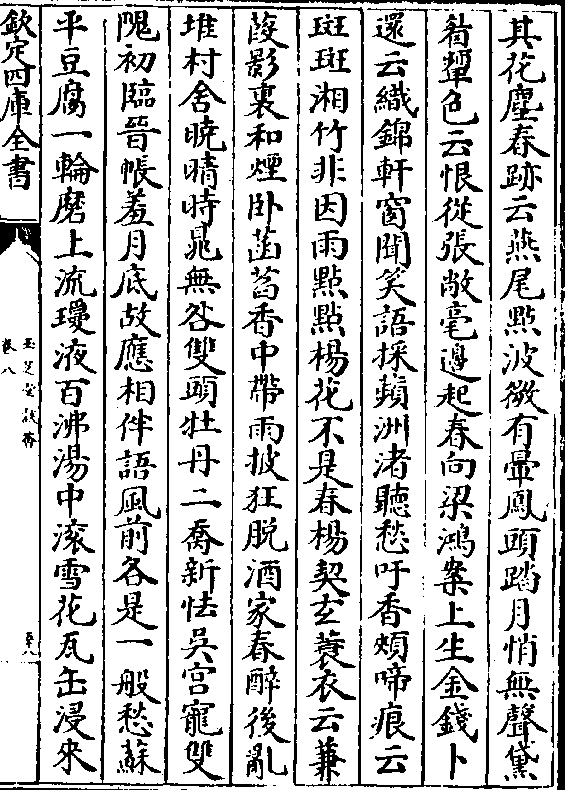 其花塵春跡云燕尾㸃波微有暈鳯頭踏月悄無聲黛
眉顰色云恨從張敞毫邊起春向梁鴻案上生金錢卜
還云織錦軒窗聞笑語採蘋洲渚聽愁吁香頰啼痕云
斑斑湘竹非因雨㸃㸃楊花不是春楊契玄蓑衣云蒹
葭影裏和煙卧菡萏香中帶雨披狂脱酒家春醉後亂
堆村舍曉晴時晁無咎雙頭牡丹二喬新怯吳宫寵雙
隗初臨晉帳羞月底故應相伴語風前各是一般愁蘇
平豆腐一輪磨上流瓊液百沸湯中滚雪花瓦缶浸來
欽定四庫全書
玉芝堂談薈
卷八